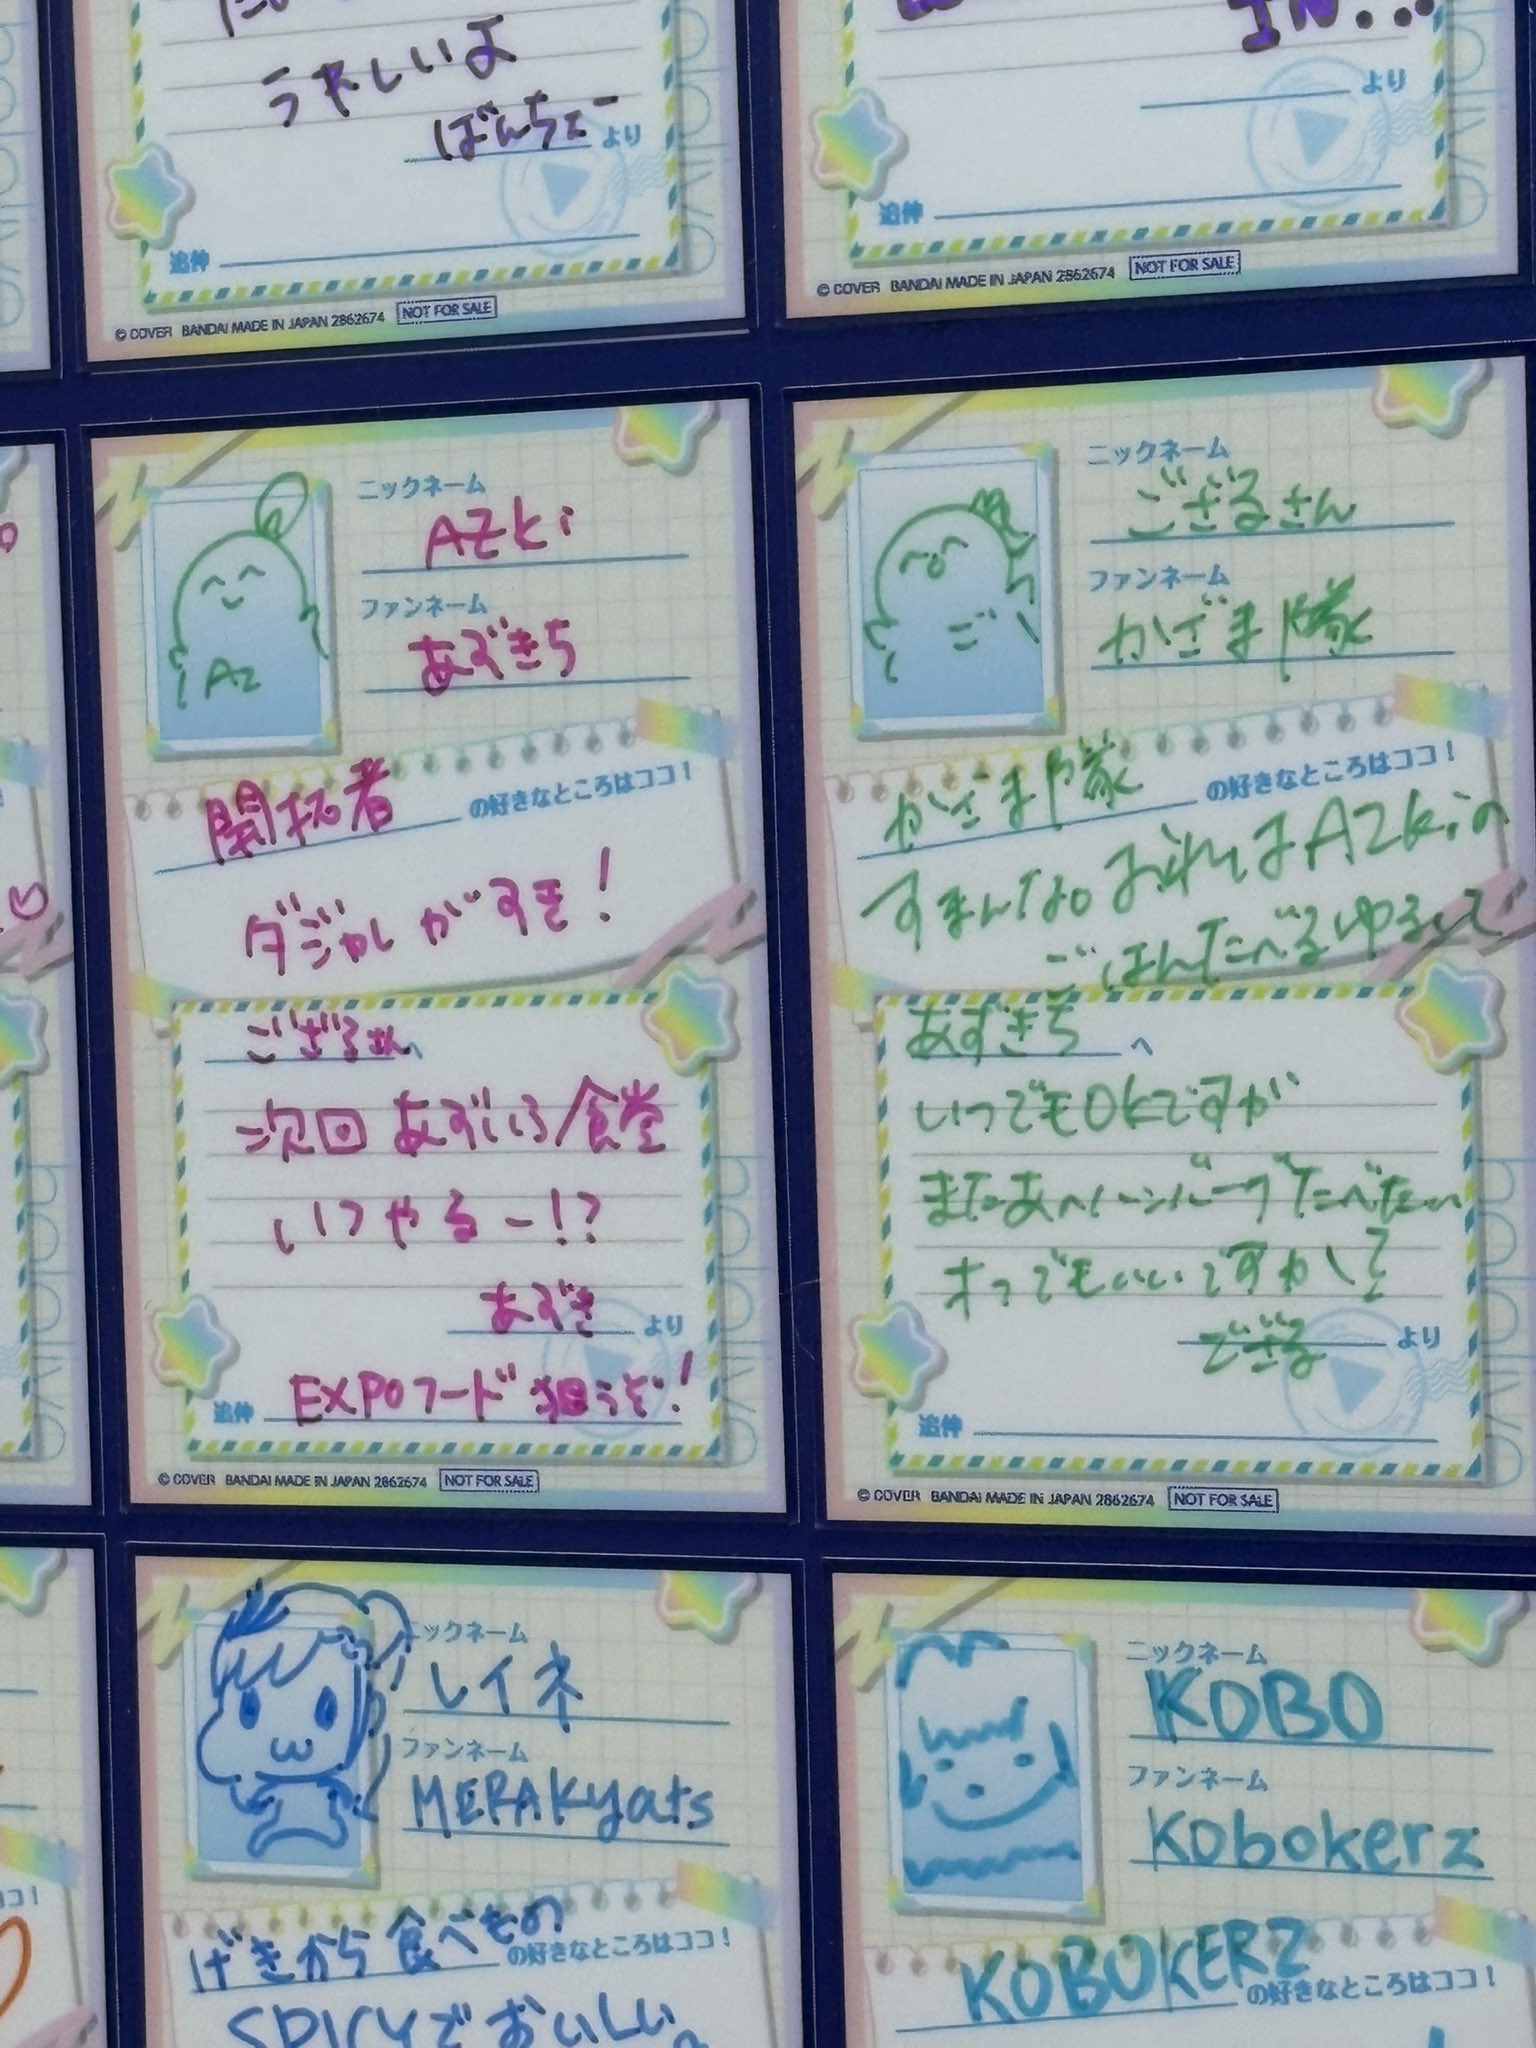 うれしいよ
ばんちょー より
追伸
© COVER BANDAI MADE IN JAPAN 2862674 NOT FOR SALE
IN...
より
追伸
© COVER BANDAI MADE IN JAPAN 2862674 NOT FOR SALE
ニックネーム
AZKi
ファンネーム
あずきち
AZ
開拓者 の好きなところはココ!
ダジャレがすき!
ござるさんへ
次回 あずいろ食堂
いつやるー!?
あずき より
追伸 EXPOフード狙うぞ!
© COVER BANDAI MADE IN JAPAN 2862674 NOT FOR SALE
ニックネーム
ござるさん
ファンネーム
かざま隊
ご
かざま隊 の好きなところはココ!
すまんな。おれはAZKiの
ごはんたべる ゆるして
あずきち へ
いつでもOKですが
またあのハンバーグたべたい
オってもいいですかして
ござる より
追伸
© COVER BANDAI MADE IN JAPAN 2862674 NOT FOR SALE
ニックネーム
レイネ
ファンネーム
MERAKyats
げきから食べもの の好きなところはココ!
SPICYでおいしい
ニックネーム
KOBO
ファンネーム
Kobokerz
KOBOKERZ の好きなところはココ!